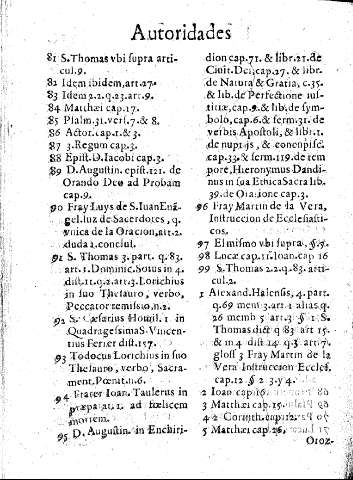 Autoridades
81 S. Thomas vbi supra arti-
cul.9.
82 Idem ibidem, art.27.
83 Idem 2.2.q.23.art.9.
84 Matthæi cap.17.
85 Psalm.31.vers.7.& 8.
86 Actor.cap.1.& 3.
87 3.Regum cap.3.
88 Epist.D.Iacobi cap.3.
89 D.Augustin. epist.121. de
Orando Deo ad Probam
cap.9.
90 Fray Luys de S.Iuan Euã-
gel.luz de Sacerdotes, q.
vnica de la Oracion,art.2.
duda 1.conclus.
91 S. Thomas 3. part. q.83.
art.1.Dominic.Sotus in 4.
dist.11.q.2.art.3.Lorichius
in suo Thesauro, verbo,
Peccator remissio,n.2.
92 S. Cæsarius Homil. 1 in
QuadragessimaS.Vincen-
tius Ferrer dist.157.
93 Todocus Lorichius in suo
Thesauro, verbo, Sacra-
ment.Pœnit.n.6.
94 Frater Ioan. Taulerus in
præparat.1. ad fœlicem
mortem.
95 D. Augustin. in Enchiri-
dion cap.71. & libr.21.de
Ciuit.Dei,cap.27. & libr.
de Natura & Gratia, c.35.
& lib.de Perfectione ius-
titiæ,cap.9.& lib,de sym-
bolo,cap.6.& serm.31. de
verbis Apostoli, & libr.1.
de nuptijs, & concupisc.
cap.33.& serm.119.de tem
pore,Hieronymus Dandi-
nus in sua Ethica Sacra lib.
39.de Oratione cap.3.
96 Fray Martin de la Vera,
Instruccion de Ecclesiasti-
cos.
97 El mismo vbi supra, §.
98 Lucæ cap.11.Ioan.cap 16
99 S.Thomas 2.2.q.83. arti-
cul.2.
1 Alexand.Halensis, 4. part.
q.69 mem 3.art.1 alias.q.
26 memb 5 art.3 §1 S.
Thomas dict q 83 art 15.
& in 4 dist 14 q.3 art 7.
gloss 3 Fray Martin de la
Vera Instruccion Eccles.
cap.12 § 2 3.y 4.
2 Ioan cap.16.
3 Matthæi cap.15.
4 2.Corinth.cap.12.
5 Matthæi cap 26.
Oroz.